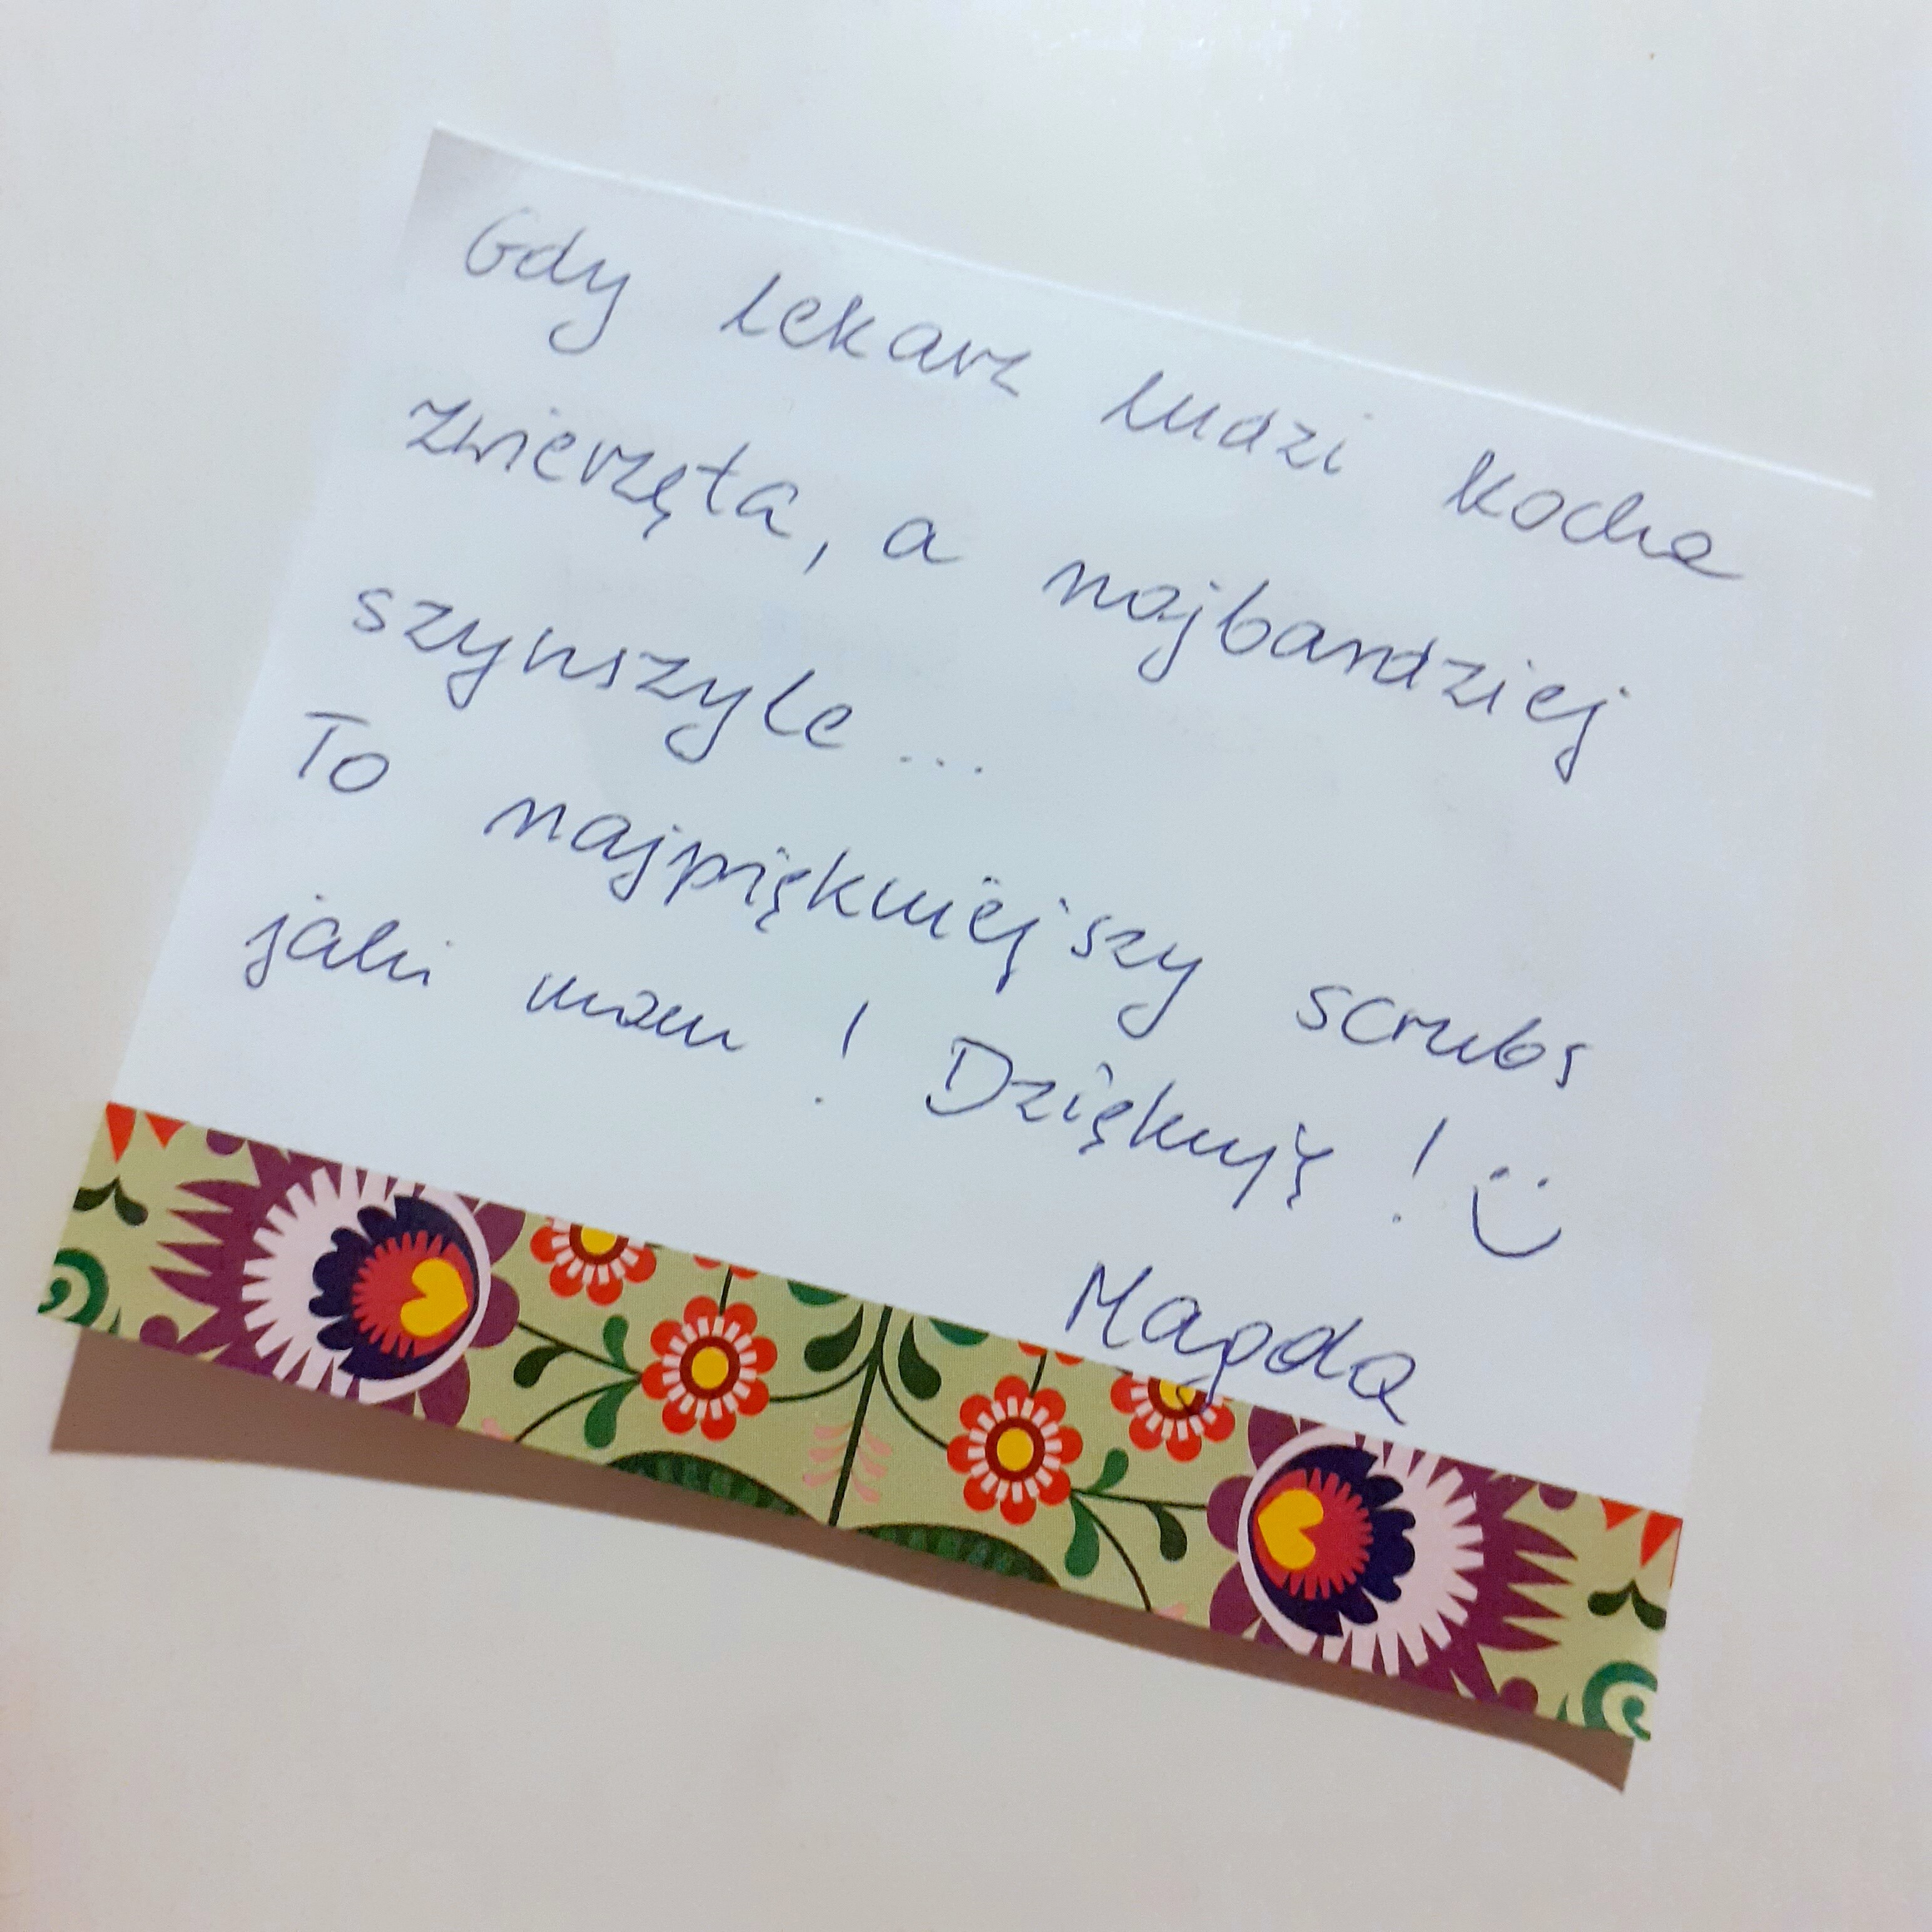 Gdy lekarz ludzi kocha
zwierzęta, a najbardziej
szynszyle...
To najpiękniejszy scrubs
jaki mam! Dziękuję! :)
Magda